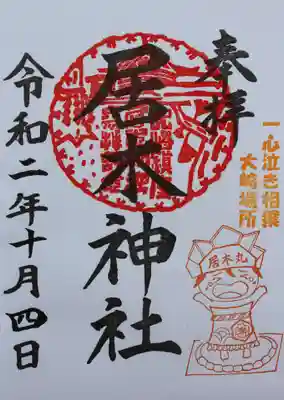 奉拝
居木神社
令和二年十月四日
一心泣き相撲
大崎場所
居木丸